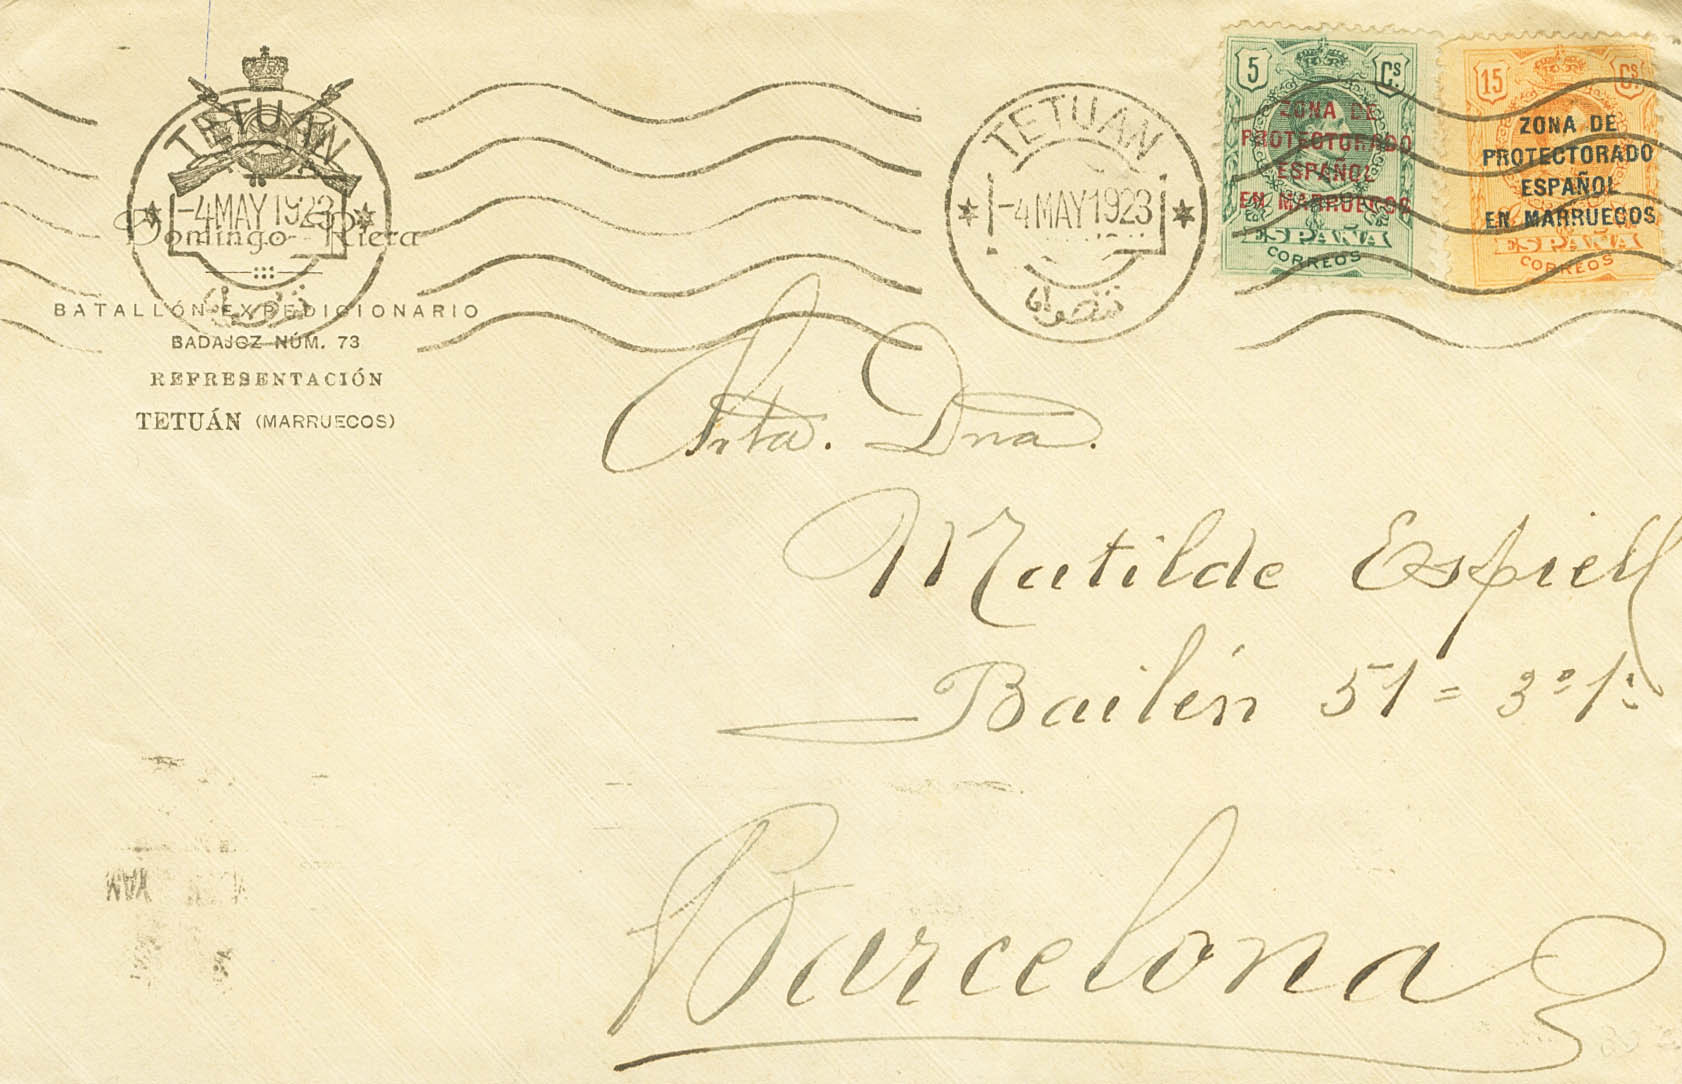 TETUAN
-4 MAY 1923
Domingo Riera
BATALLÓN EXPEDICIONARIO
BADAJOZ NÚM. 73
REPRESENTACIÓN
TETUÁN (MARRUECOS)
TETUAN
-4 MAY 1923
تتطوان
5 Cs
ZONA DE
PROTECTORADO
ESPAÑOL
EN MARRUECOS
ESPAÑA
CORREOS
15 Cs
ZONA DE
PROTECTORADO
ESPAÑOL
EN MARRUECOS
ESPAÑA
CORREOS
Srta. Dna.
Matilde Espriell
Bailén 51 = 3º 1ª
Barcelona